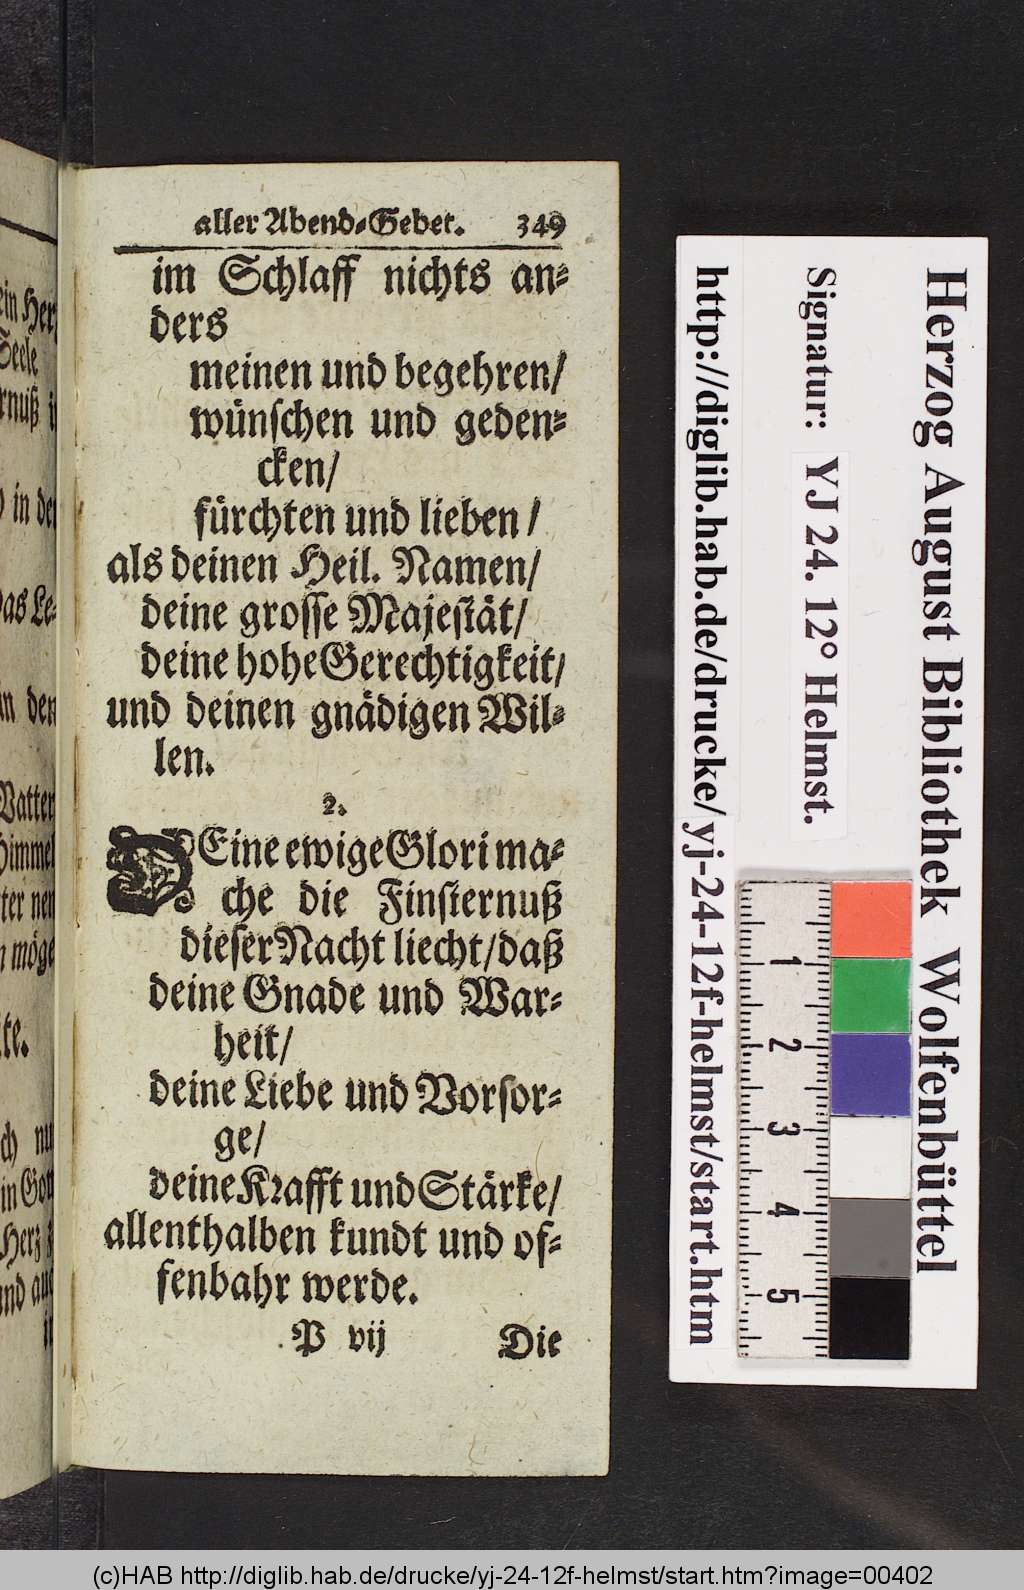 aller Abend-Gebet. 349
im Schlaff nichts an-
ders
meinen und begehren/
wünschen und geden-
cken/
fürchten und lieben/
als deinen Heil. Namen/
deine grosse Majestät/
deine hohe Gerechtigkeit/
und deinen gnädigen Wil-
len.
2.
DEine ewige Glori ma-
che die Finsternuß
dieser Nacht liecht/ daß
deine Gnade und War-
heit/
deine Liebe und Vorsor-
ge/
deine Krafft und Stärke/
allenthalben kundt und of-
fenbahr werde.
P vij Die
ein Herz
Seele
rnuß
in der
das Le-
in den
Vatter
Himmel
möge
te.
Herz
Herzog August Bibliothek Wolfenbüttel
Signatur: YJ 24. 12° Helmst.
http://diglib.hab.de/drucke/yj-24-12f-helmst/start.htm
1
2
3
4
5
(c)HAB http://diglib.hab.de/drucke/yj-24-12f-helmst/start.htm?image=00402